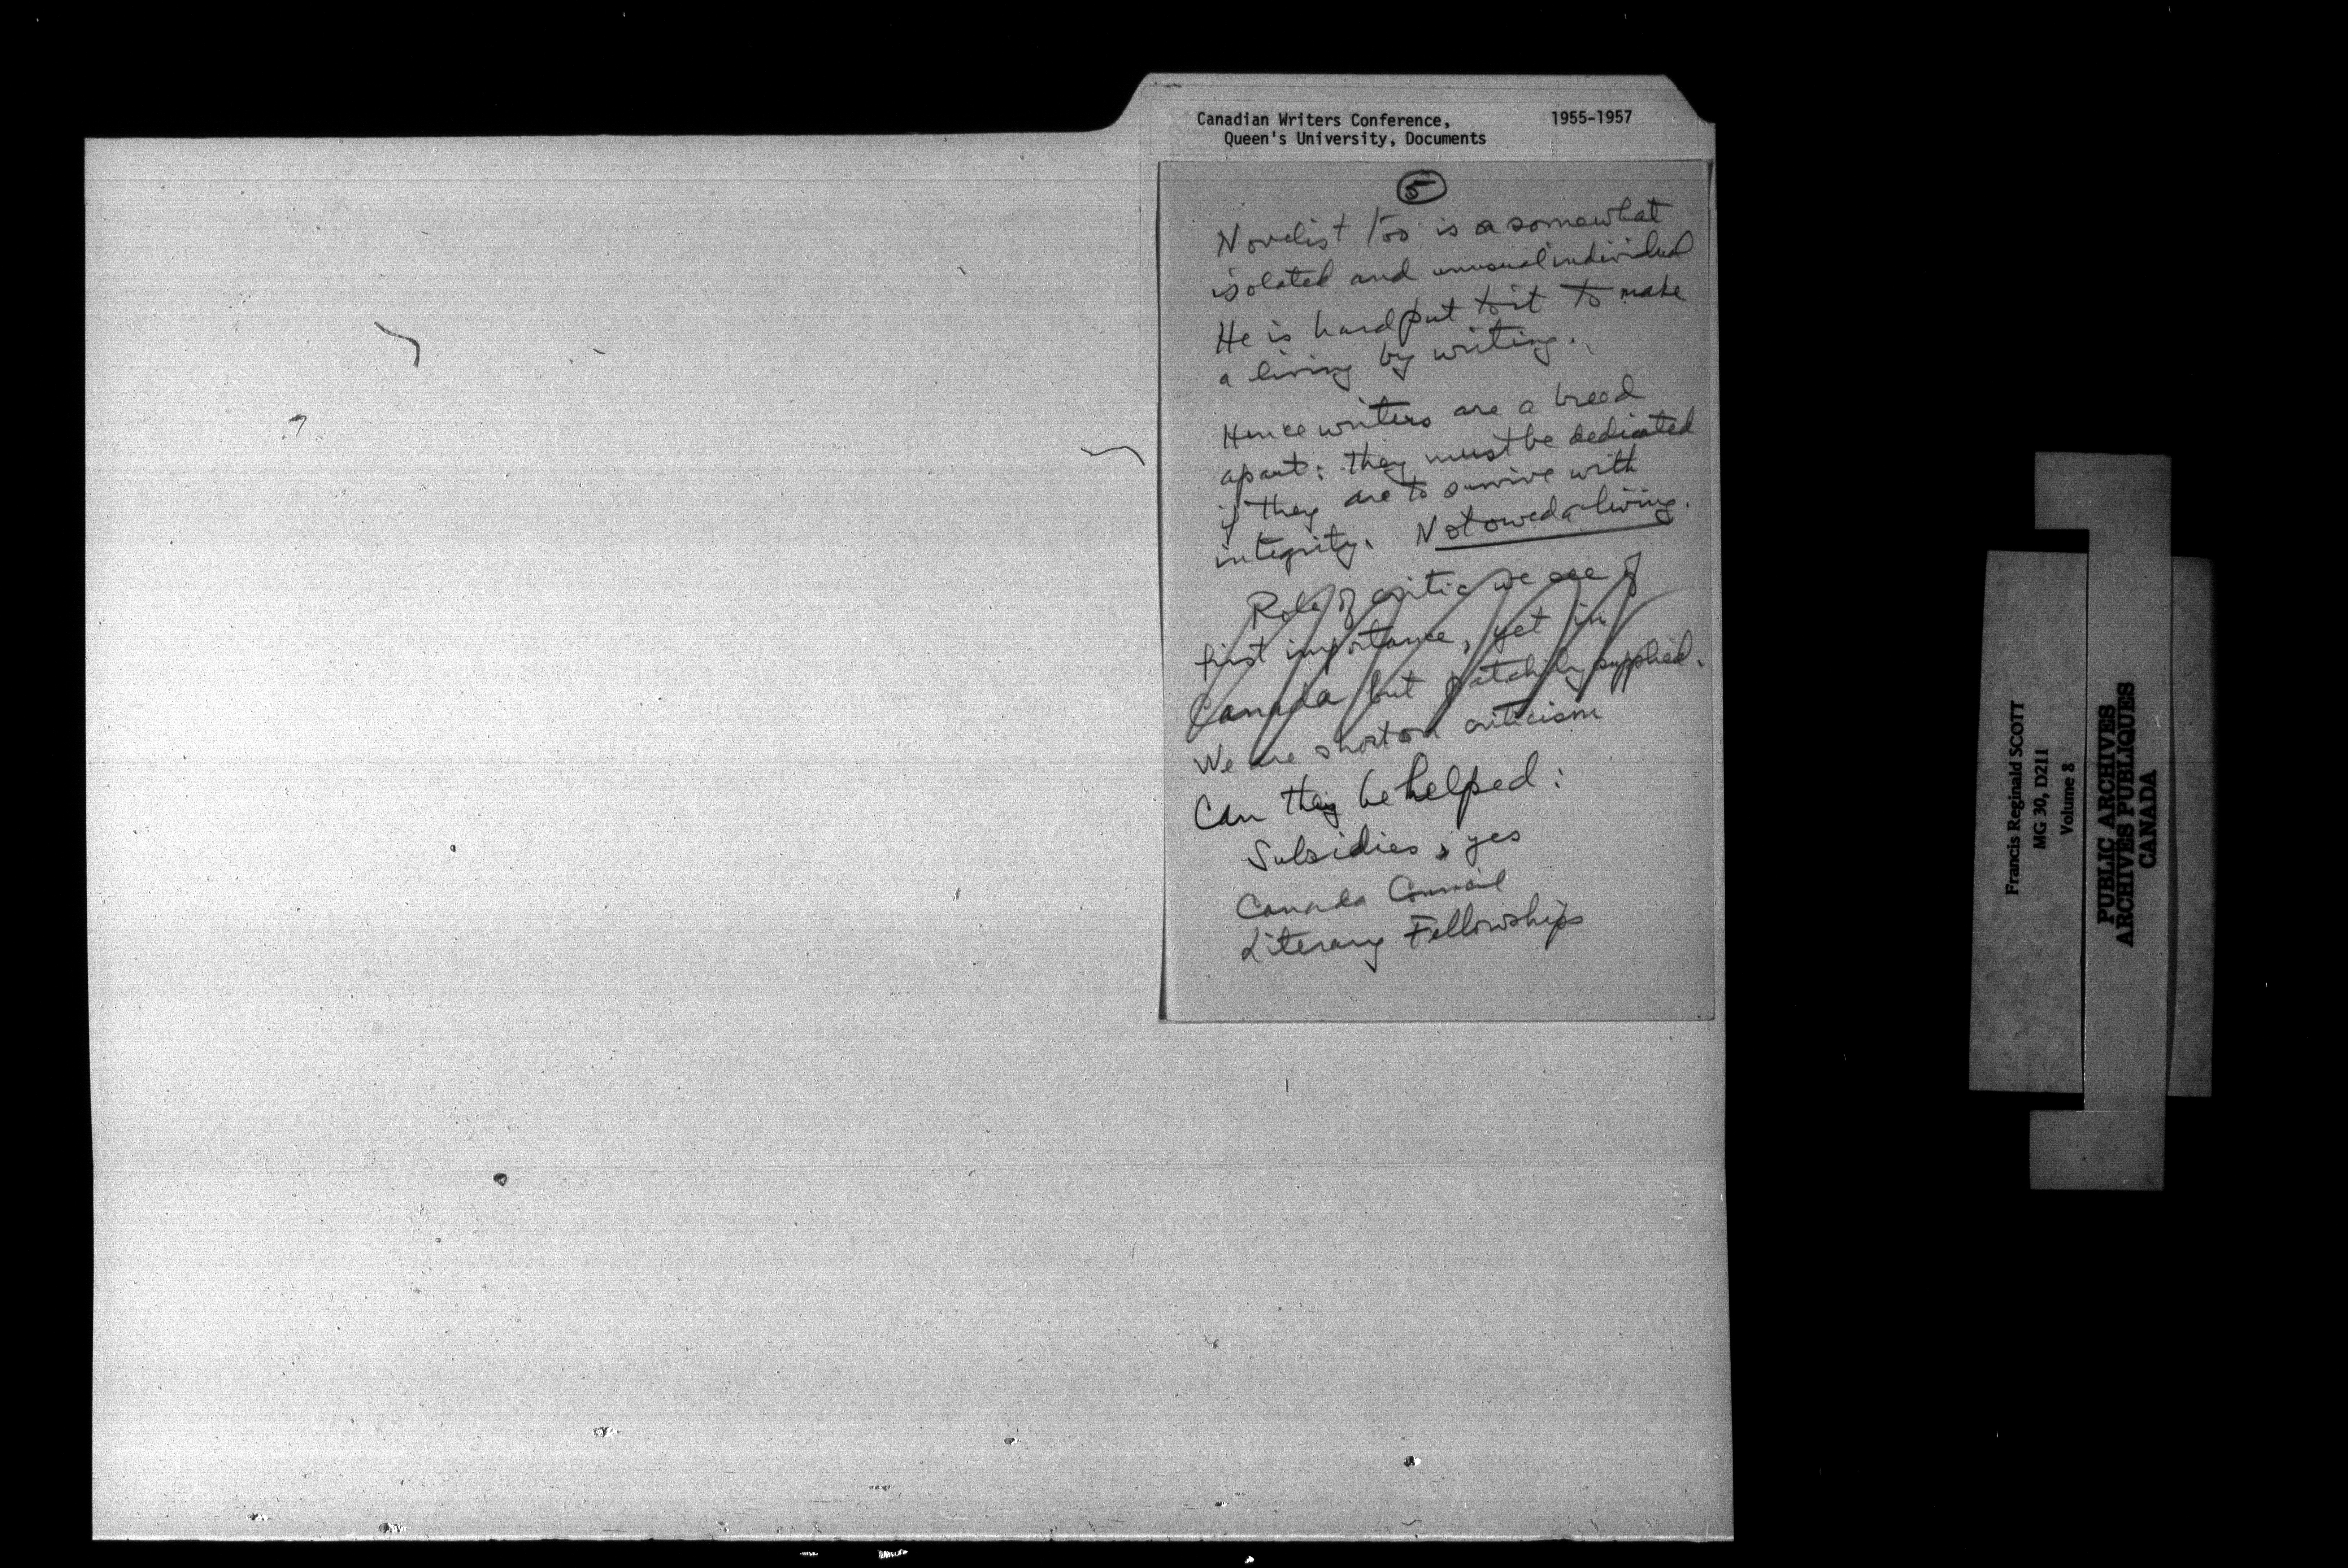 Canadian Writers Conference, 1955-1957
Queen's University, Documents
5
Novelist too is a somewhat
isolated and unusual individual
He is hard put to it to make
a living by writing.
Hence writers are a breed
apart: they must be dedicated
if they are to survive with
integrity. Not owed a living.
Role of critic we see of
first importance, yet in
Canada but patchily supplied.
We are short on criticism
Can they be helped:
Subsidies, yes
Canada Council
Literary Fellowships
Francis Reginald SCOTT
MG 30, D211
Volume 8
PUBLIC ARCHIVES
ARCHIVES PUBLIQUES
CANADA